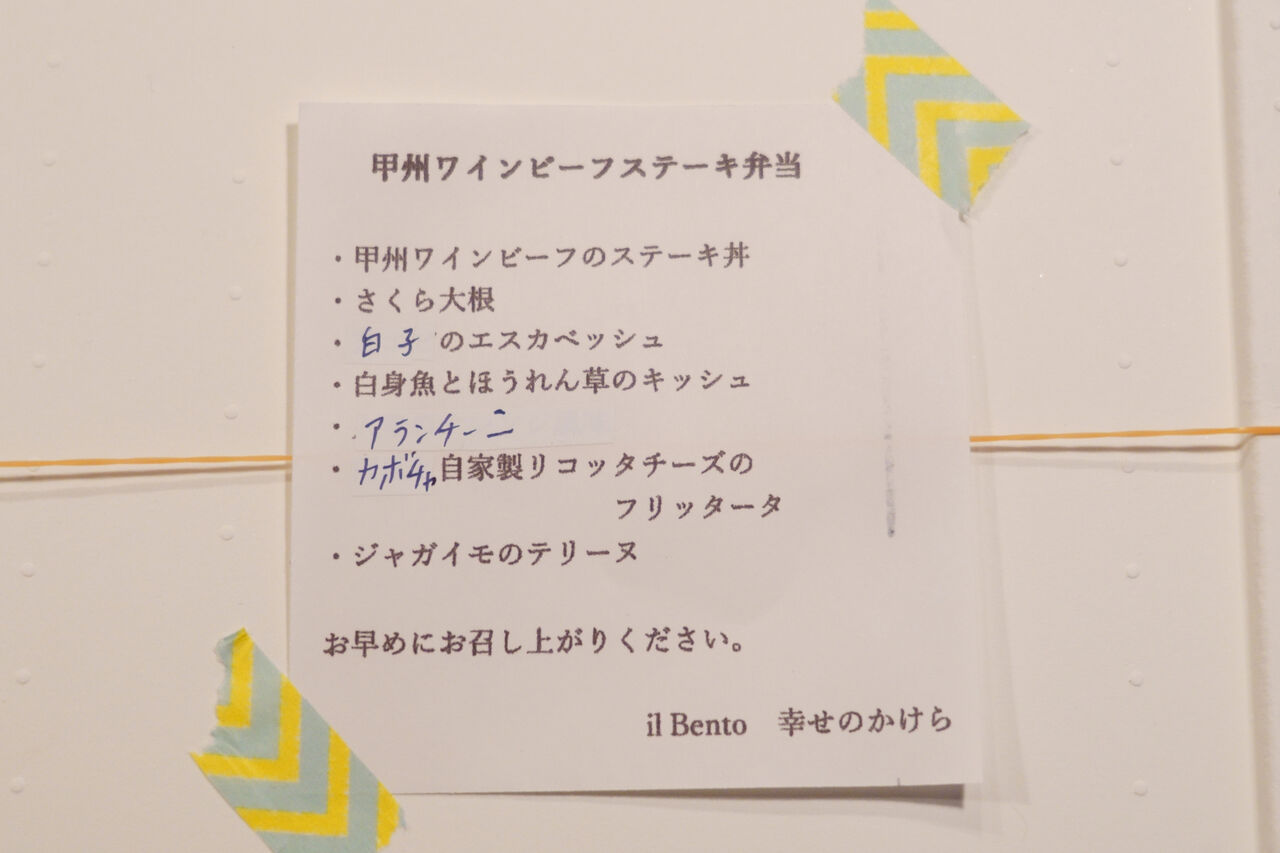 甲州ワインビーフステーキ弁当
・甲州ワインビーフのステーキ丼
・さくら大根
・白子のエスカベッシュ
・白身魚とほうれん草のキッシュ
・アランチーニ
・カボチャ自家製リコッタチーズの
フリッタータ
・ジャガイモのテリーヌ
お早めにお召し上がりください。
il Bento 幸せのかけら